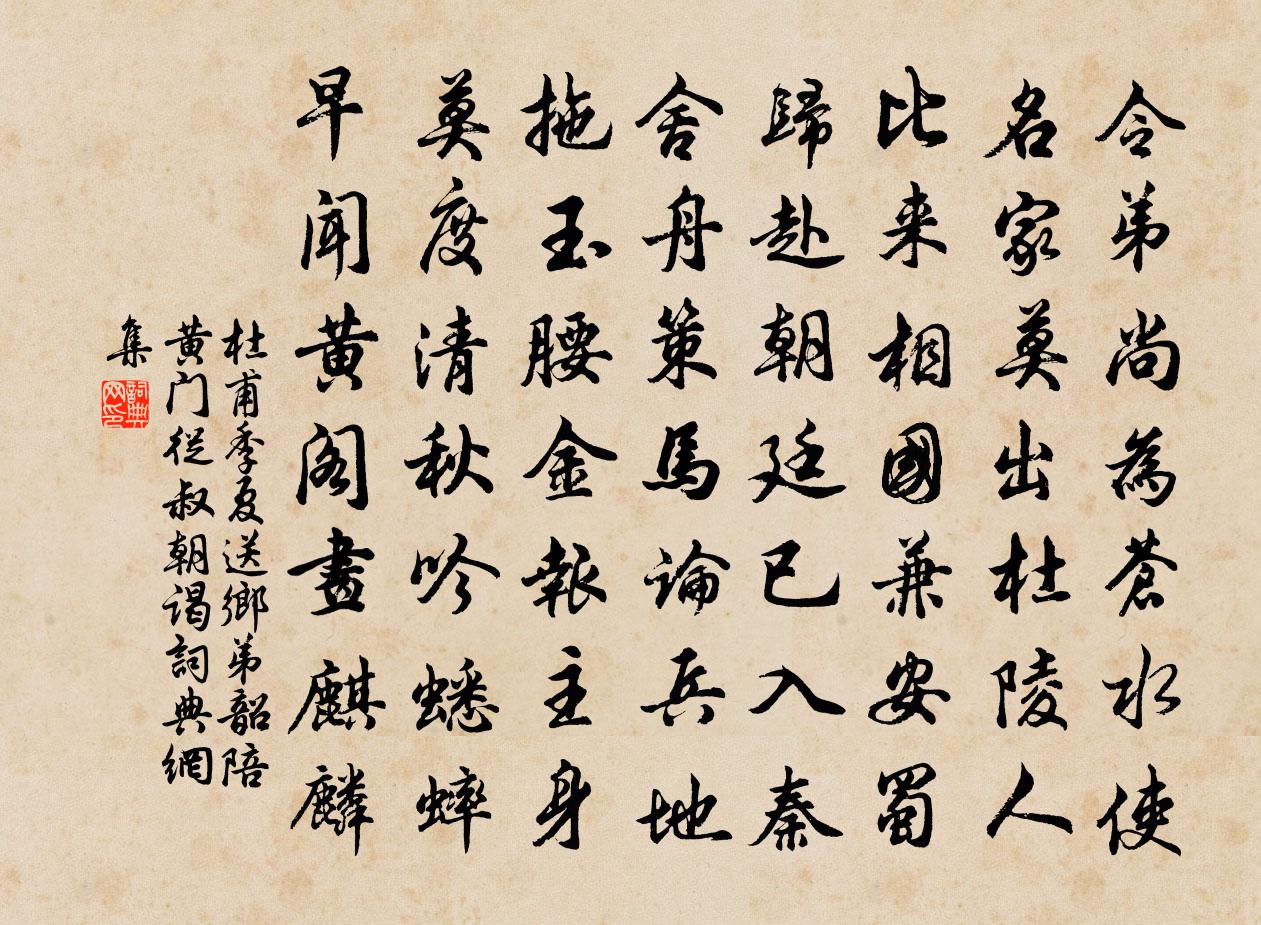 令弟尚為蒼水使
名家莫出杜陵人
比来相國兼安蜀
歸赴朝廷已入秦
舍舟策馬論兵地
拖玉腰金報主身
莫度清秋吟蟋蟀
早聞黃閣畫麒麟
杜甫季夏送鄉弟韶陪
黃門從叔朝謁詞典網
集
詞典
网印